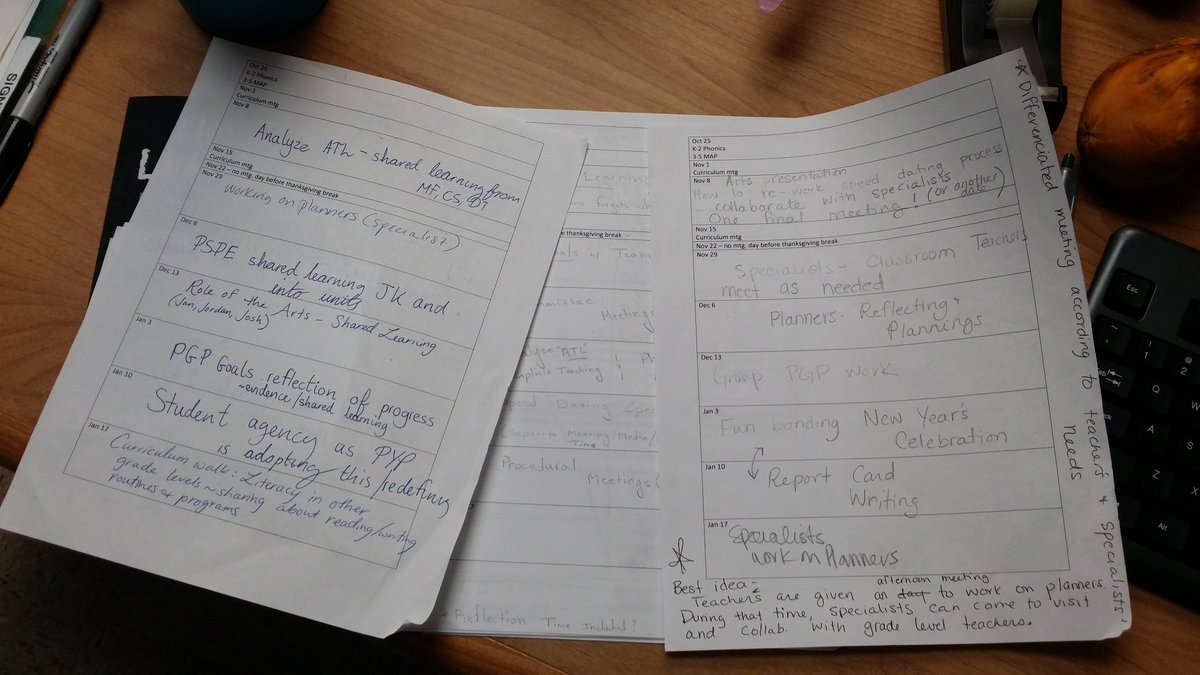 SIGN
Oct 25
K-2 Phonics
3-5 MAP
Nov 1
Curriculum mtg
Nov 8
Analyze ATL - shared learning from
MF, CS, DT
Nov 15
Curriculum mtg
Nov 22 – no mtg. day before thanksgiving break
Nov 29
working on planners (specialist)
Dec 6
PSPE shared learning JK and
into units
Dec 13
Role of the Arts - Shared Learning
(Jan, Jordan, Josh)
Jan 3
PGP Goals reflection of progress
~evidence/shared learning
Jan 10
Student agency as PYP
is adopting this/redefining
Jan 17
Curriculum walk: Literacy in other
grade levels ~sharing about reading/writing
routines & programs
Learning
day before thanksgiving break
w/ Team
Meetings
"ATL"
Teaching
Speed Dating
Separate Meeting Media/
Time
Procedural
Meetings
Reflection Time Included?
Oct 25
K-2 Phonics
3-5 MAP
Nov 1
Curriculum mtg
Nov 8
Arts resentation
How to re-work speed dating process
collaborate with specialists
One final meeting! (or another
date)
Nov 15
Curriculum mtg
Nov 22 – no mtg. day before thanksgiving break
Nov 29
Specialists - Classroom Teachers
meet as needed
Dec 6
Planners - Reflecting &
Plannings
Dec 13
Group PGP work
Jan 3
Fun bonding New Year's
Celebration
Jan 10
Report Card
Writing
Jan 17
Specialists
work on Planners
Best idea:
afternoon meeting
Teachers are given an day to work on planners
During that time, specialists can come to visit
and collab. with grade level teachers.
* Differenciated meeting according to teacher's & specialists'
needs
Esc
~
`
!
1
@
2
Q
W
A
Z
Alt